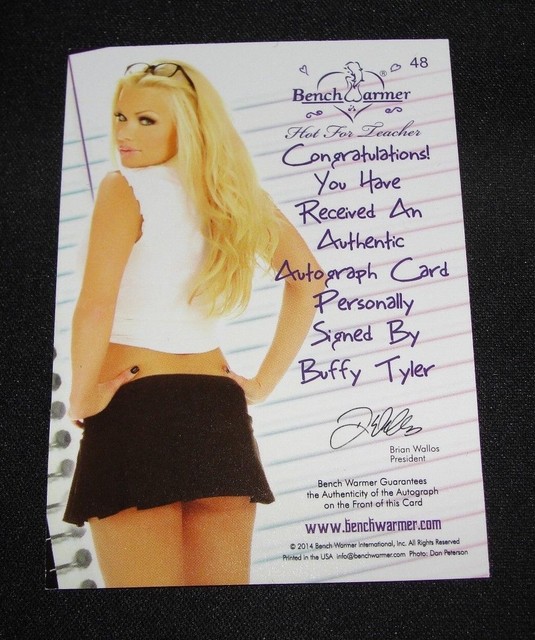 48
Bench Warmer ®
Hot For Teacher
Congratulations!
You Have
Received An
Authentic
Autograph Card
Personally
Signed By
Buffy Tyler
Brian Wallos
President
Bench Warmer Guarantees
the Authenticity of the Autograph
on the Front of this Card
www.benchwarmer.com
© 2014 Bench Warmer International, Inc. All Rights Reserved
Printed in the USA info@benchwarmer.com Photo: Dan Peterson